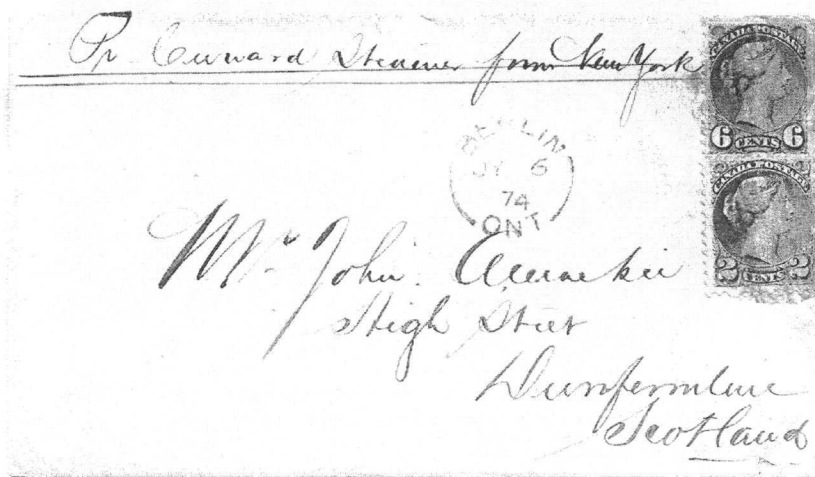 Pr Cunard Steamer from New York
CANADA POSTAGE
6 CENTS 6
CANADA POSTAGE
2 CENTS 2
BERLIN
JY 6
74
ONT
Mr John
High Street
Dunfermline
Scotland